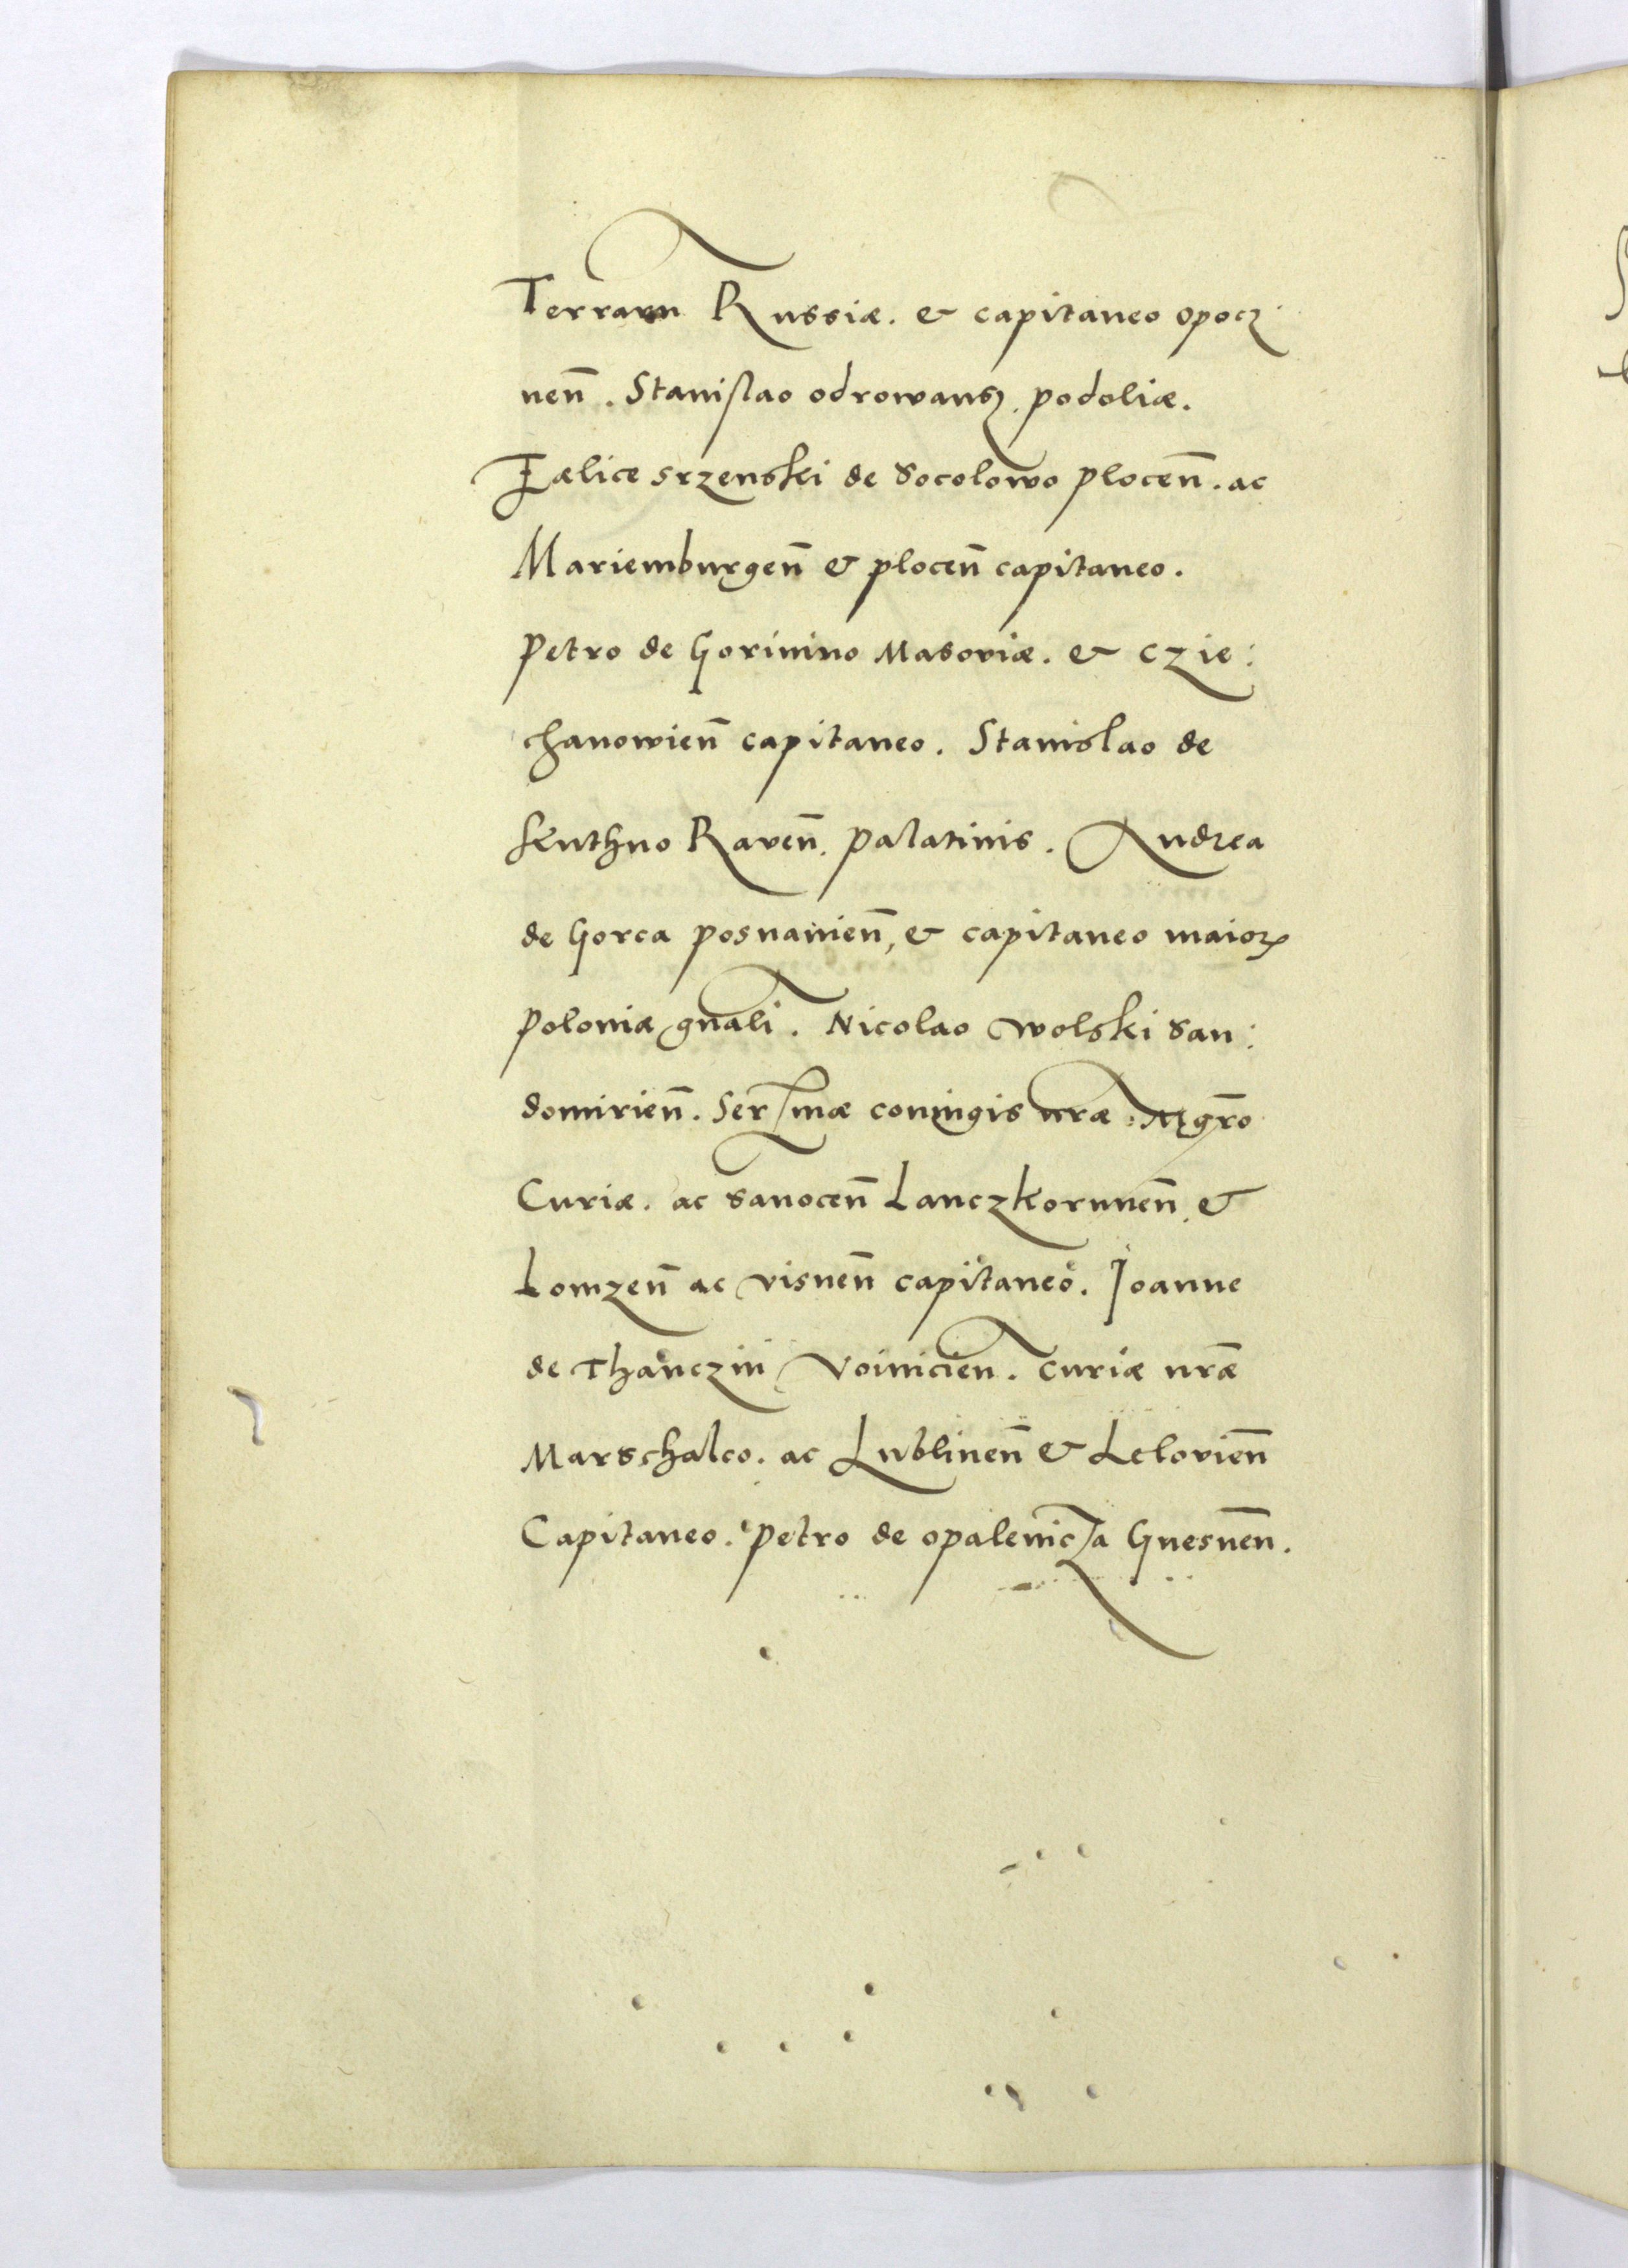 Terrarum Russiæ. & capitaneo opocz
nen̄. Stanislao odrowansz. podoliæ.
Fælice srzenski de Socolowo plocen̄. ac
Mariemburgen̄ & plocen̄ capitaneo.
Petro de Gorinino Masoviæ. & Czie:
chanowien̄ capitaneo. Stanislao de
Kuthno Raven̄. palatinis. Andrea
de Gorca posnanien̄, & capitaneo maioris
poloniæ gn̄ali. Nicolao Wolski San:
domirien̄. Ser͞mæ coniugis nr̄æ. Mgr̄o
Curiæ. ac sanocen̄ Lanczkorunen̄. &
Lomzen̄ ac visnen̄ capitaneo. Joanne
de Thanczin Voinicien̄. Curiæ nr̄æ
Marschalco. ac Lublinen̄ & Lelovien̄
Capitaneo. Petro de opalenicza Gnesnen̄.